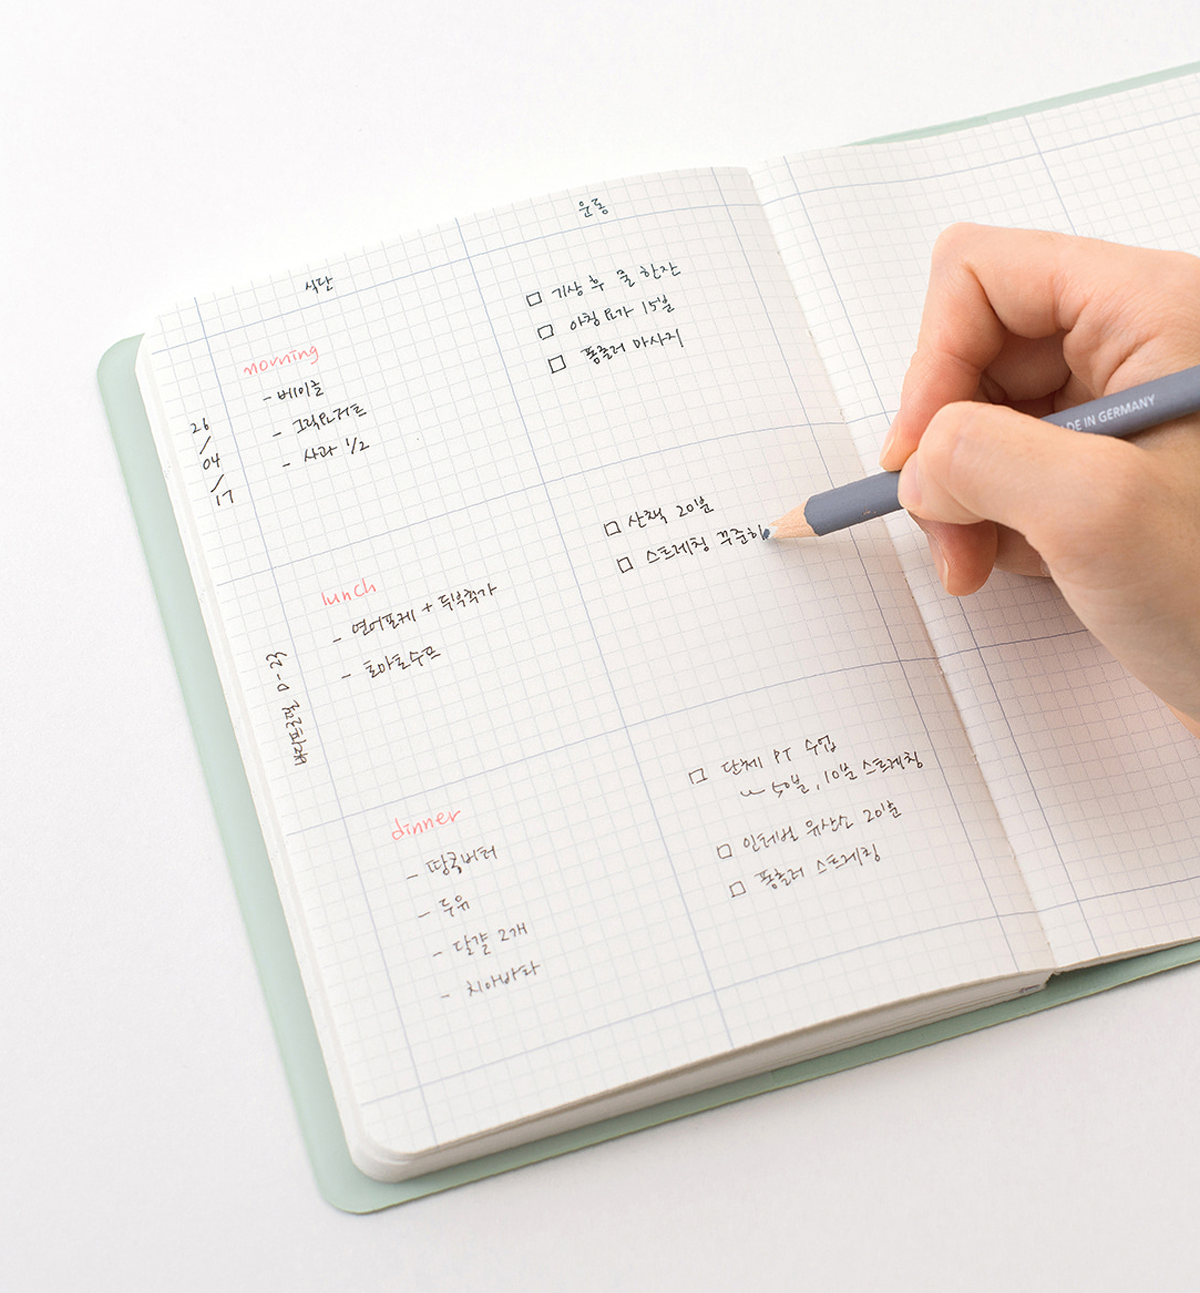 식단
운동
26
/
04
/
17
바디프로필 D-23
morning
- 베이글
- 그릭요거트
- 사과 1/2
□ 기상 후 물 한잔
□ 아침 요가 15분
□ 폼롤러 마사지
lunch
- 연어포케 + 두부추가
- 토마토수프
□ 산책 20분
□ 스트레칭 꾸준히
dinner
- 땅콩버터
- 두유
- 달걀 2개
- 치아바타
□ 단체 PT 수업
50분, 10분 스트레칭
□ 인터벌 유산소 20분
□ 폼롤러 스트레칭
DE IN GERMANY